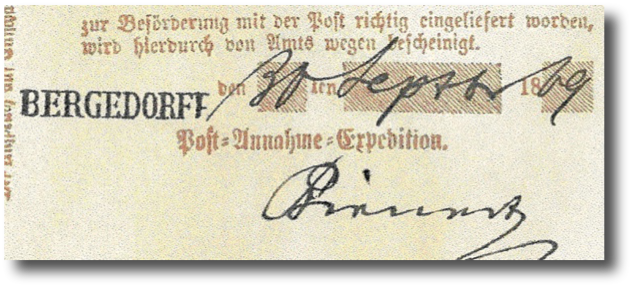 zur Beförderung mit der Post richtig eingeliefert worden,
wird hierdurch von Amts wegen bescheinigt.
BERGEDORFF, den 30 ten Septbr 1869
Post-Annahme-Expedition.